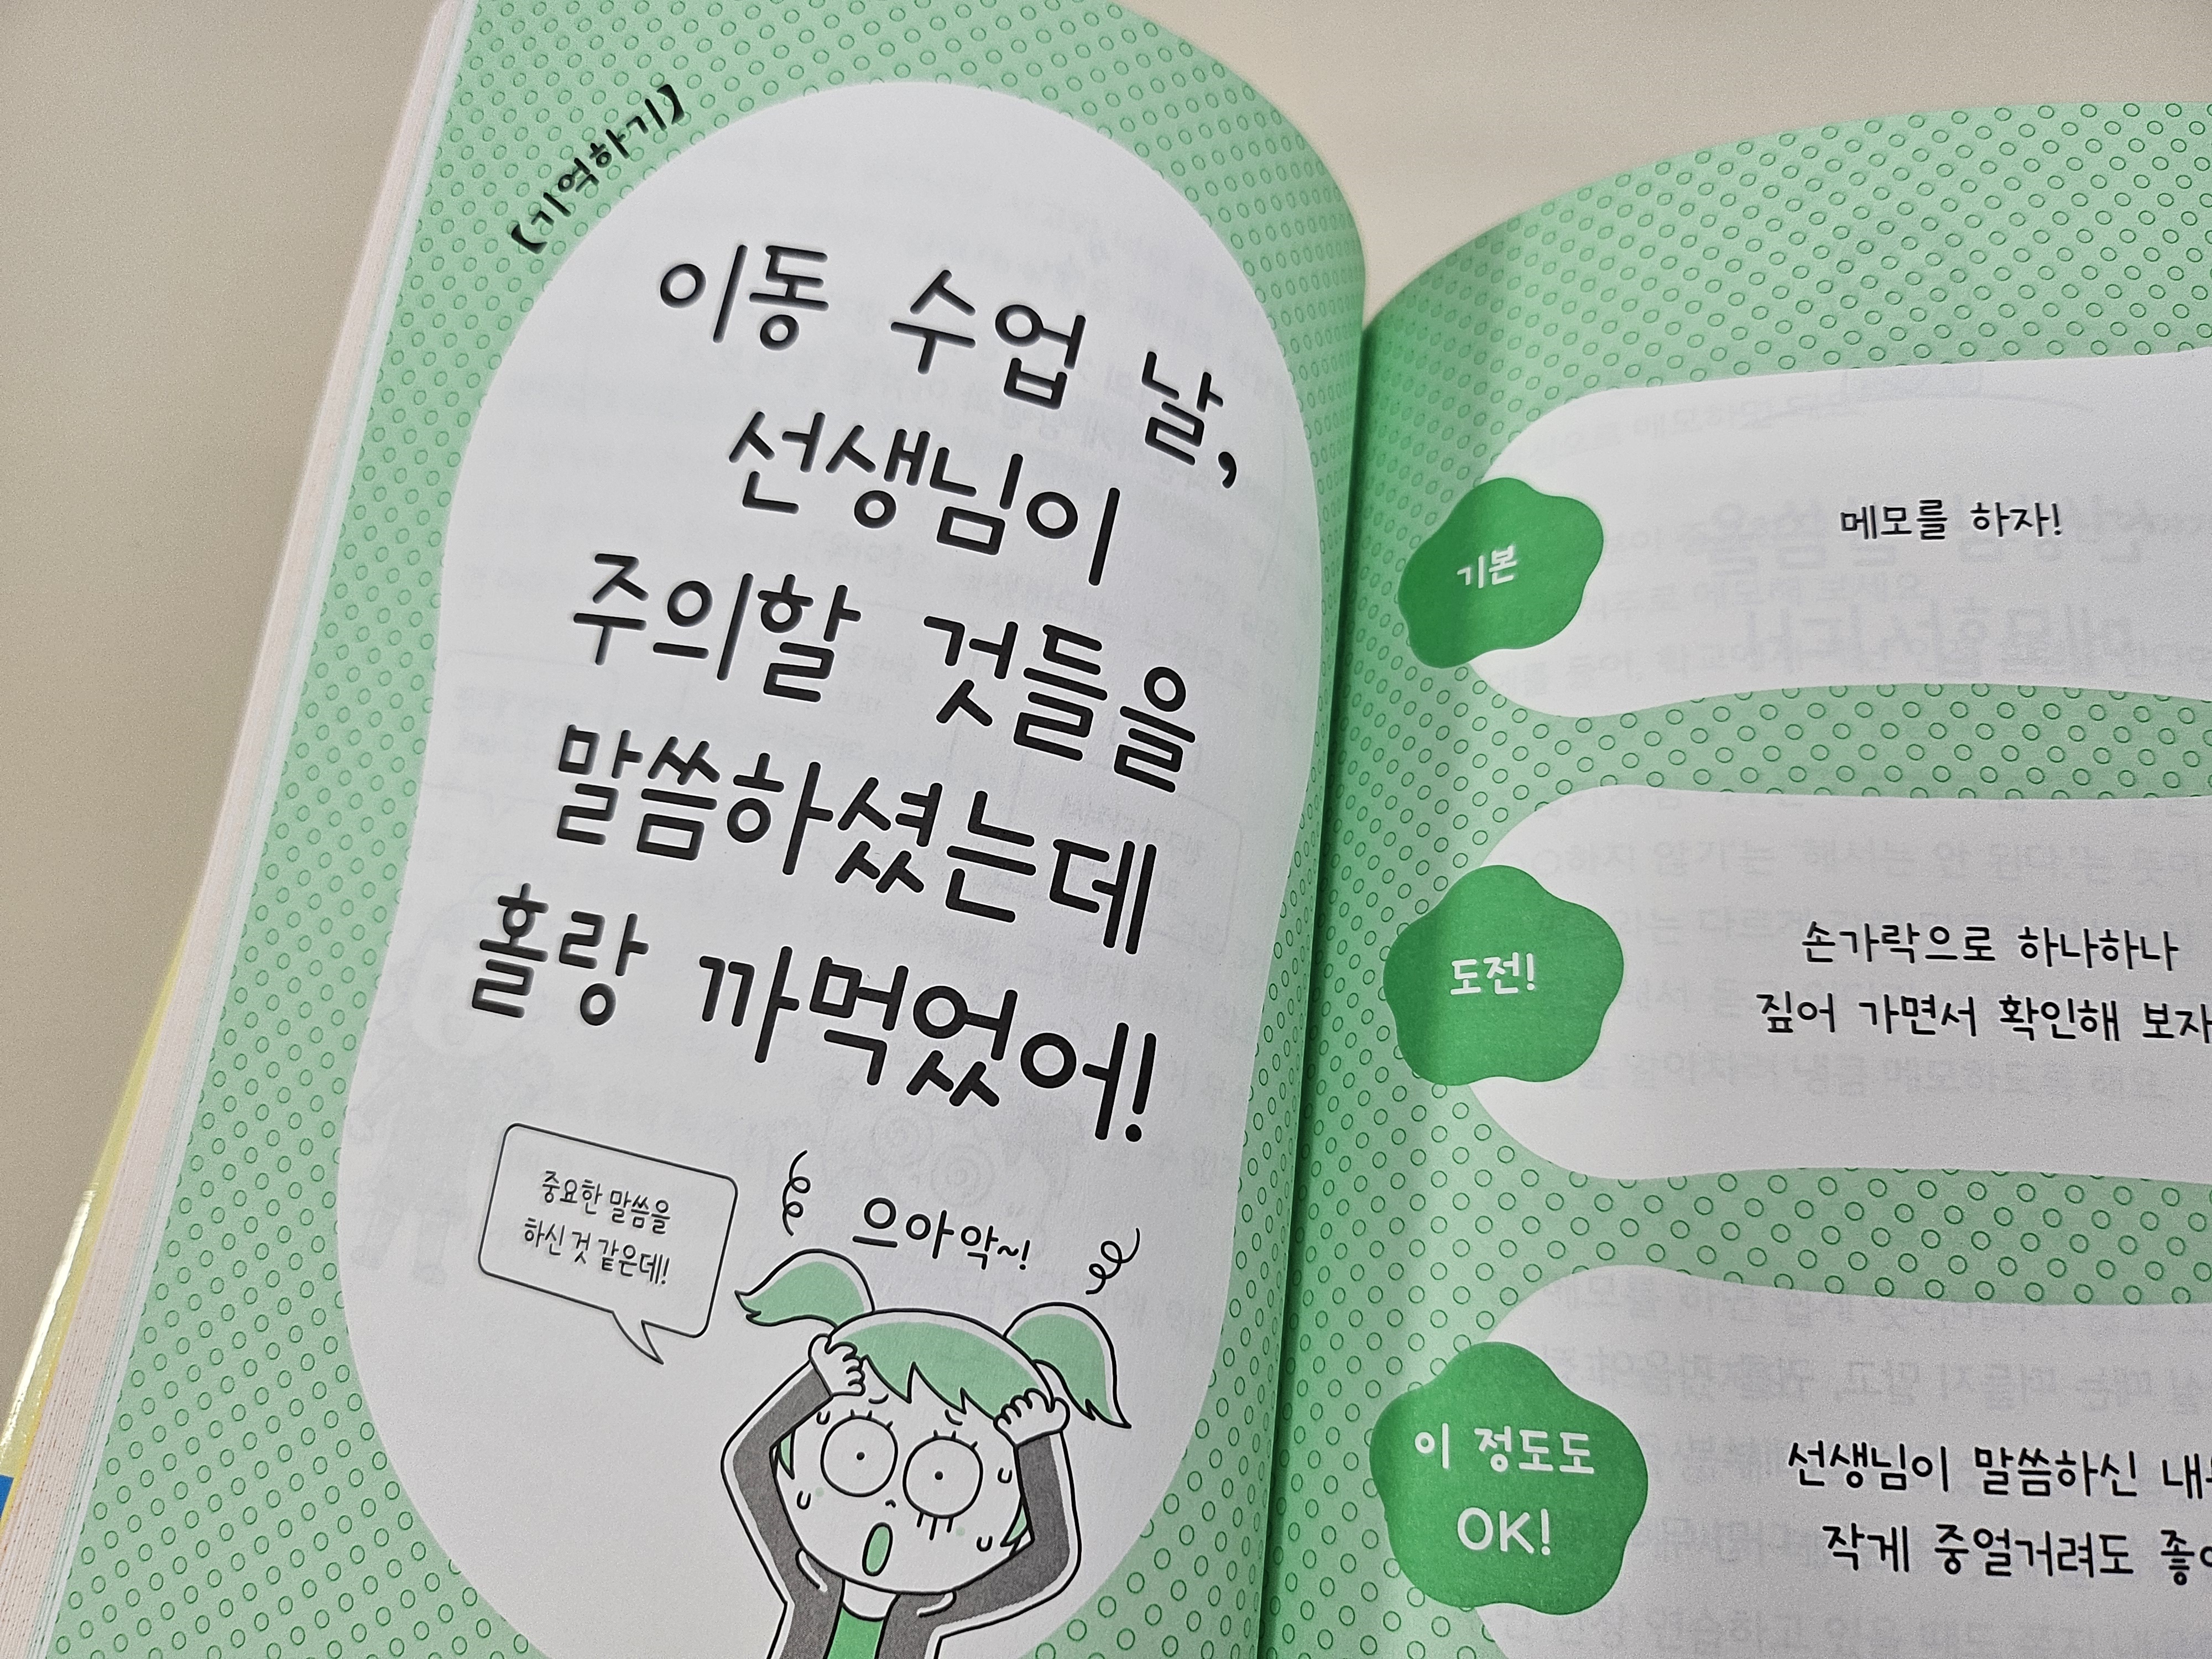 【기억하기】
이동 수업 날,
선생님이
주의할 것들을
말씀하셨는데
홀랑 까먹었어!
중요한 말씀을
하신 것 같은데!
으아악~!
기본
메모를 하자!
도전!
손가락으로 하나하나
짚어 가면서 확인해 보자
이 정도도
OK!
선생님이 말씀하신
작게 중얼거려도